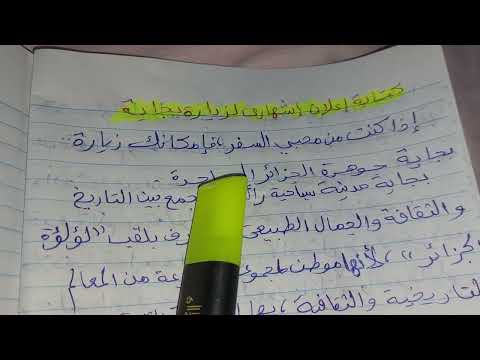 كتابة إعلان إشهاري لزيارة بجاية
إذا كنت من محبي السفر، فإمكانك زيارة
بجاية جوهرة الجزائر
بجاية مدينة ساحلية تجمع بين التاريخ
و الثقافة والجمال الطبيعي بلقب "لؤلؤة
الجزائر"، لأنها موطن من المعالم
التاريخية والثقافة، بما